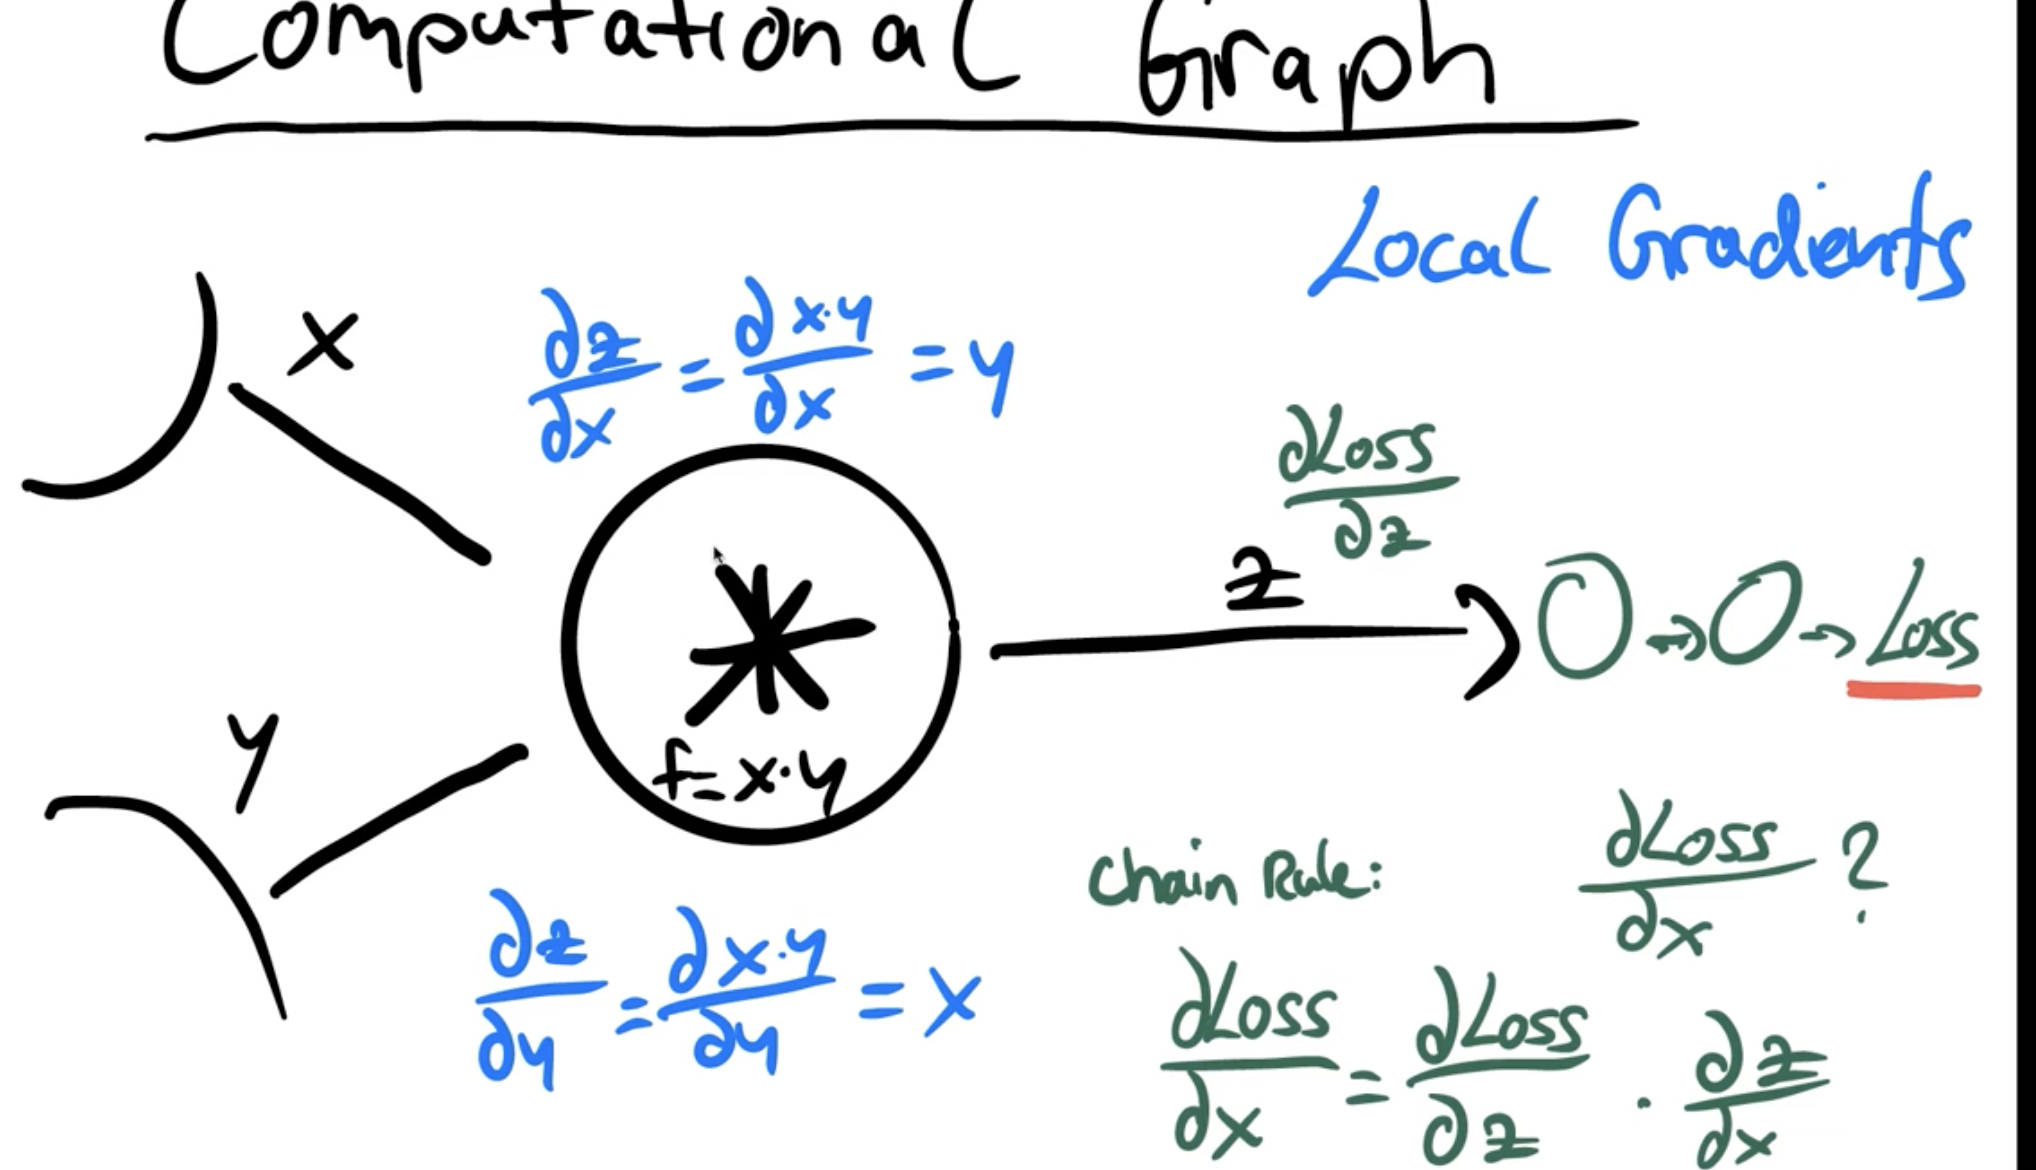 Computational Graph
Local Gradients
x
∂z/∂x = ∂x·y/∂x = y
∂Loss/∂z
z
*
f=x·y
O → O → Loss
y
∂z/∂y = ∂x·y/∂y = x
Chain Rule:
∂Loss/∂x ?
∂Loss/∂x = ∂Loss/∂z · ∂z/∂x